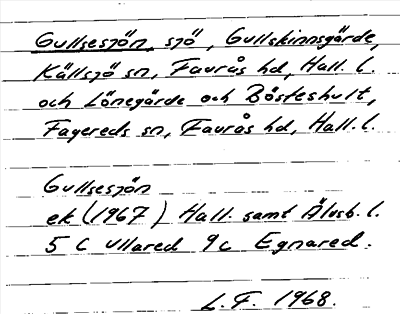 Gullsesjön, sjö, Gullskinnsgärde,
Källsjö sn, Faurås hd, Hall. l.
och Lönegärde och Bösteshult,
Fagereds sn, Faurås hd, Hall. l.
Gullsesjön
ek (1967) Hall. samt Älvsb. l.
5 C Ullared 9c Egnared.
L.F. 1968.